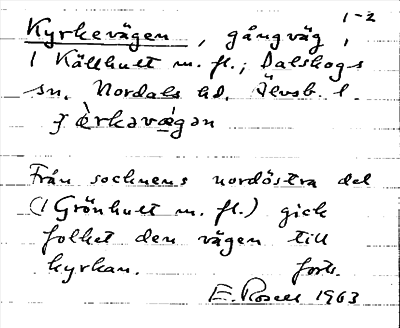 1-2
Kyrkevägen, gångväg,
1 Källhult m. fl.; Dalskogs
sn. Nordals hd. Älvsb. l.
Från socknens nordöstra del
(1 Grönhult m. fl.) gick
folket den vägen till
kyrkan. forts.
E. Rosell 1963